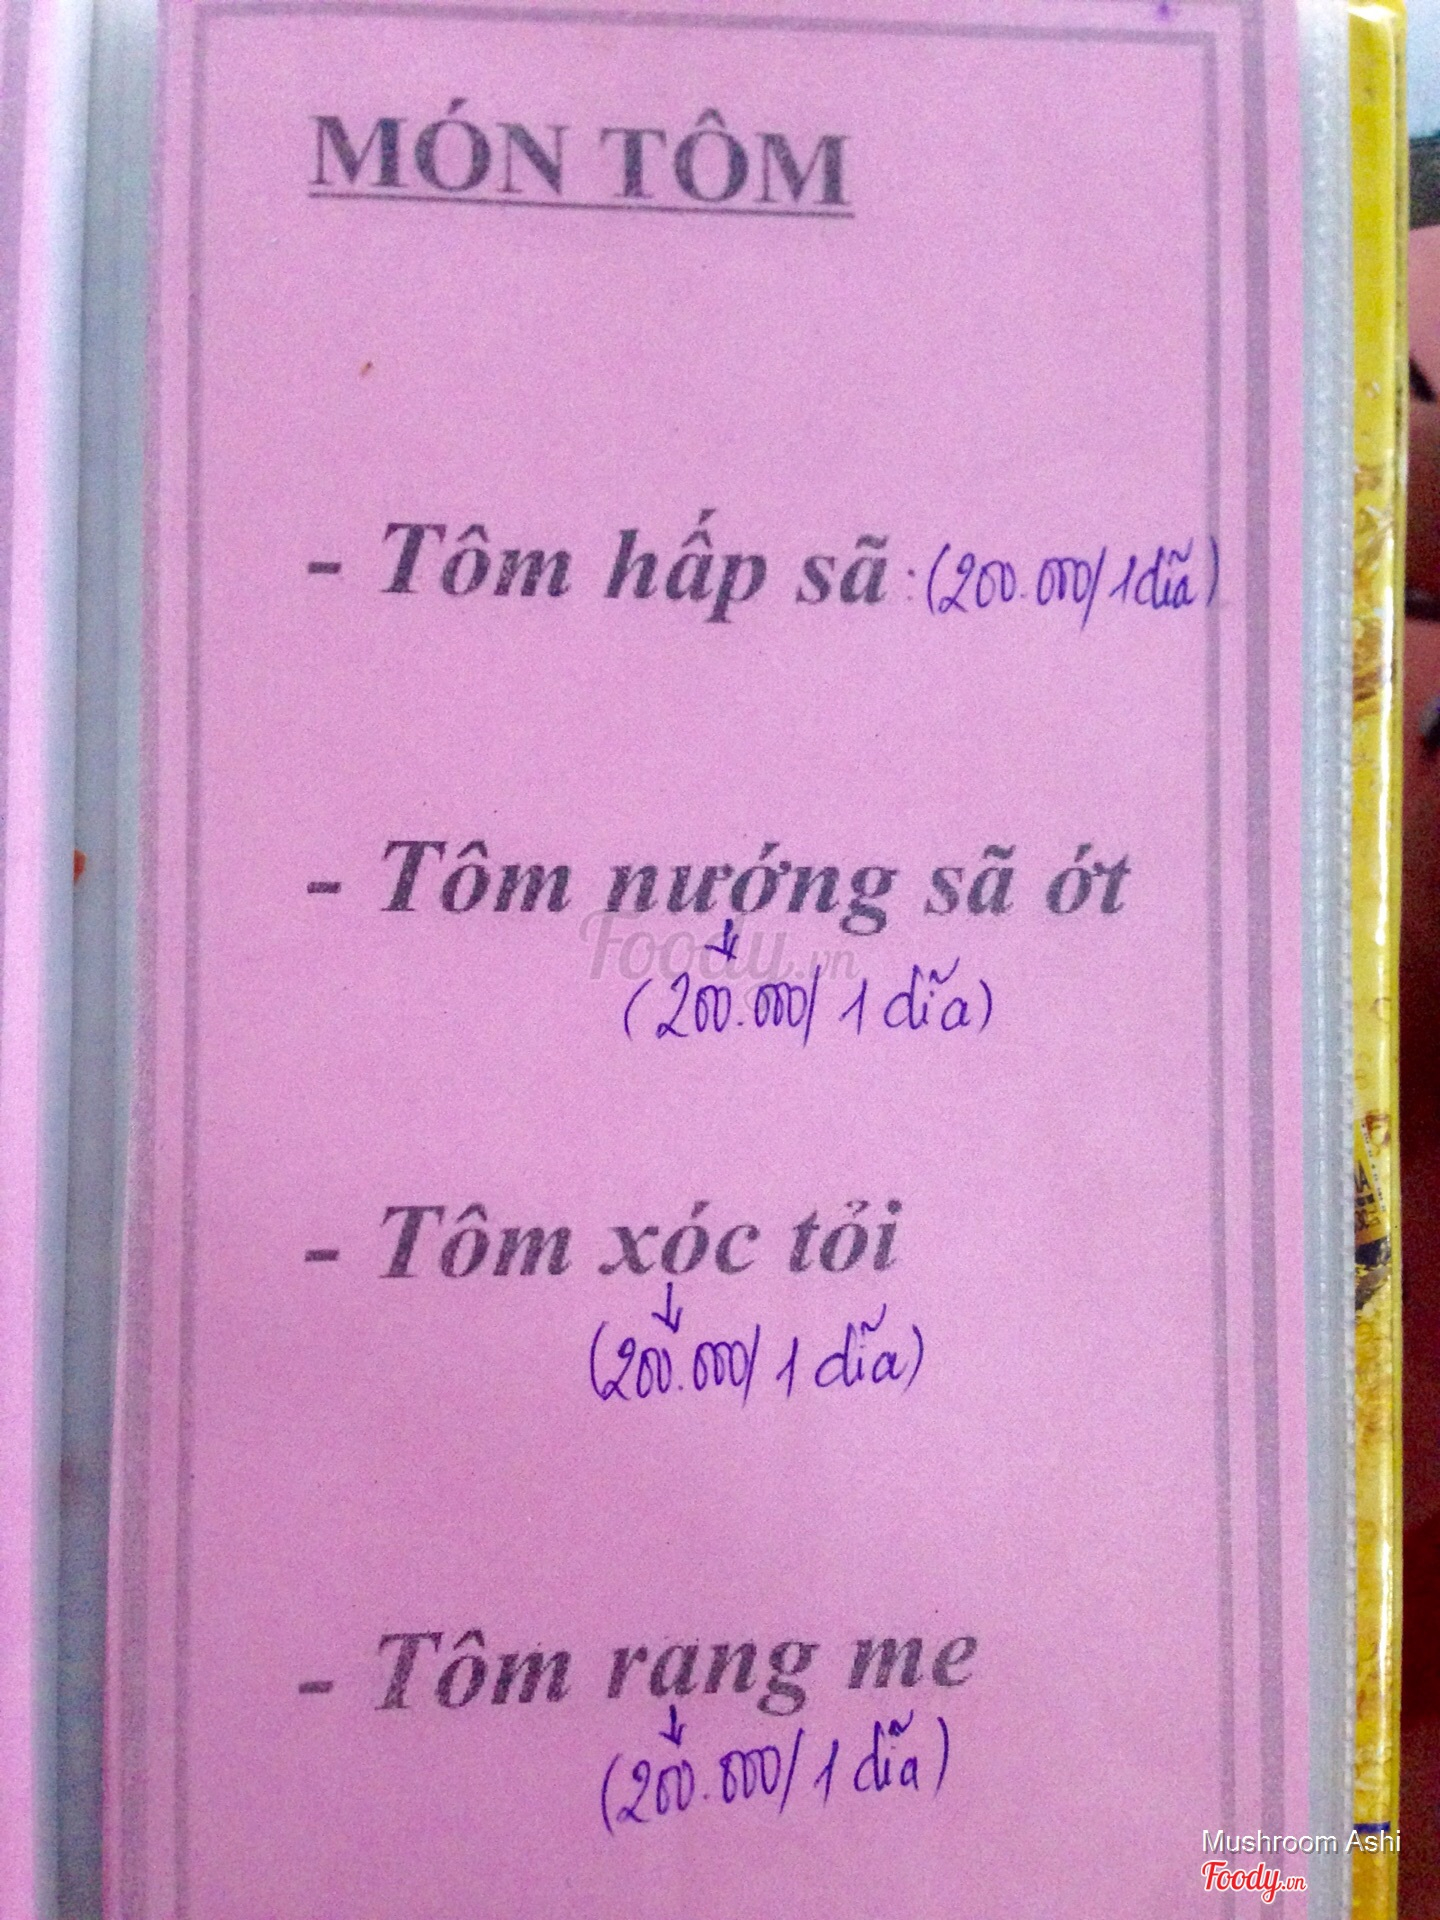 MÓN TÔM
- Tôm hấp sã : (200.000/ 1 dĩa)
- Tôm nướng sã ớt
Foody.vn
(200.000/ 1 dĩa)
- Tôm xóc tỏi
(200.000/ 1 dĩa)
- Tôm rang me
(200.000/ 1 dĩa)
Mushroom Ashi
Foody.vn